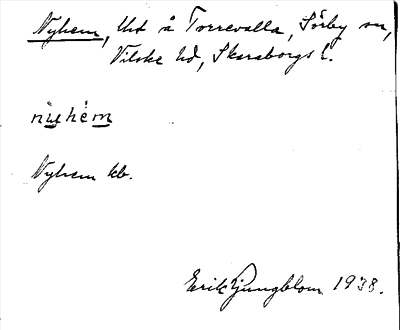 Nyhem, Uts å Torrevalla, Sörby sn,
Vilske hd, Skaraborgs l.
nyhem
Nyhem kb.
Erik Ljungblom 1938.